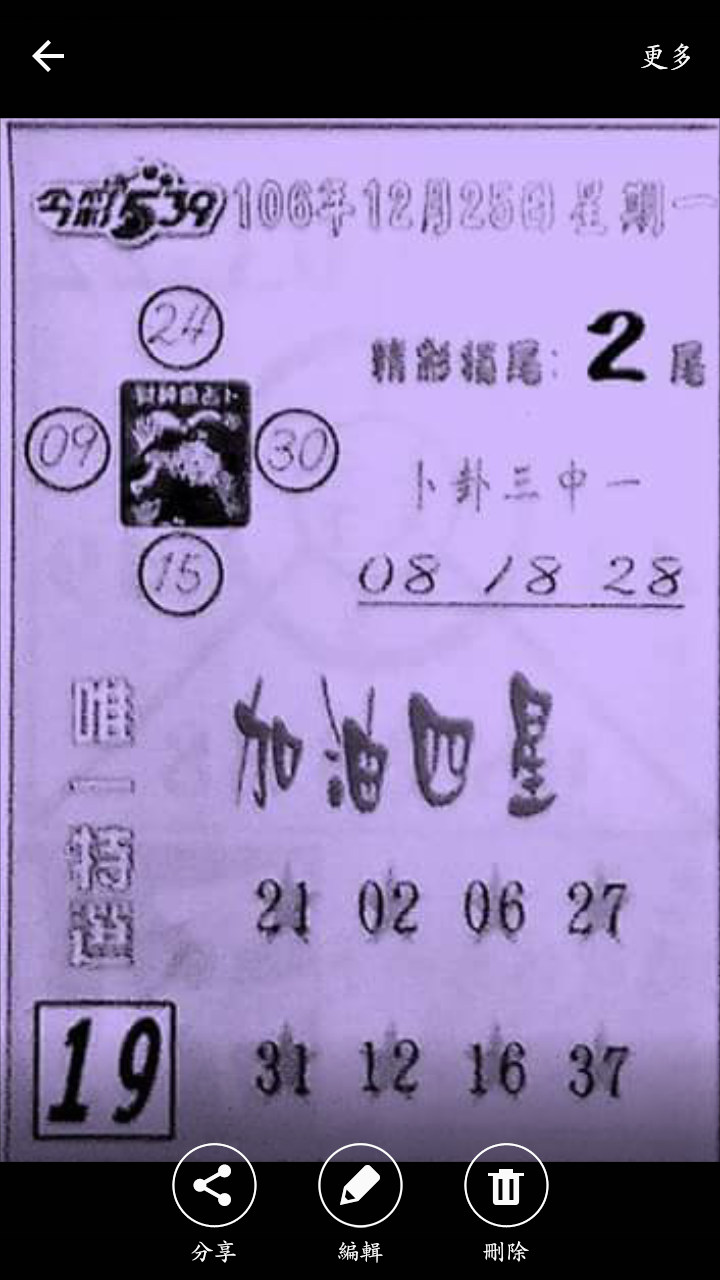 更多
今彩539 106年12月25日 星期一
24
精彩搖尾: 2 尾
財神爺占卜
09 30
卜卦三中一
15
08 18 28
唯一特
21 02 06 27
19
31 12 16 37
分享 編輯 刪除